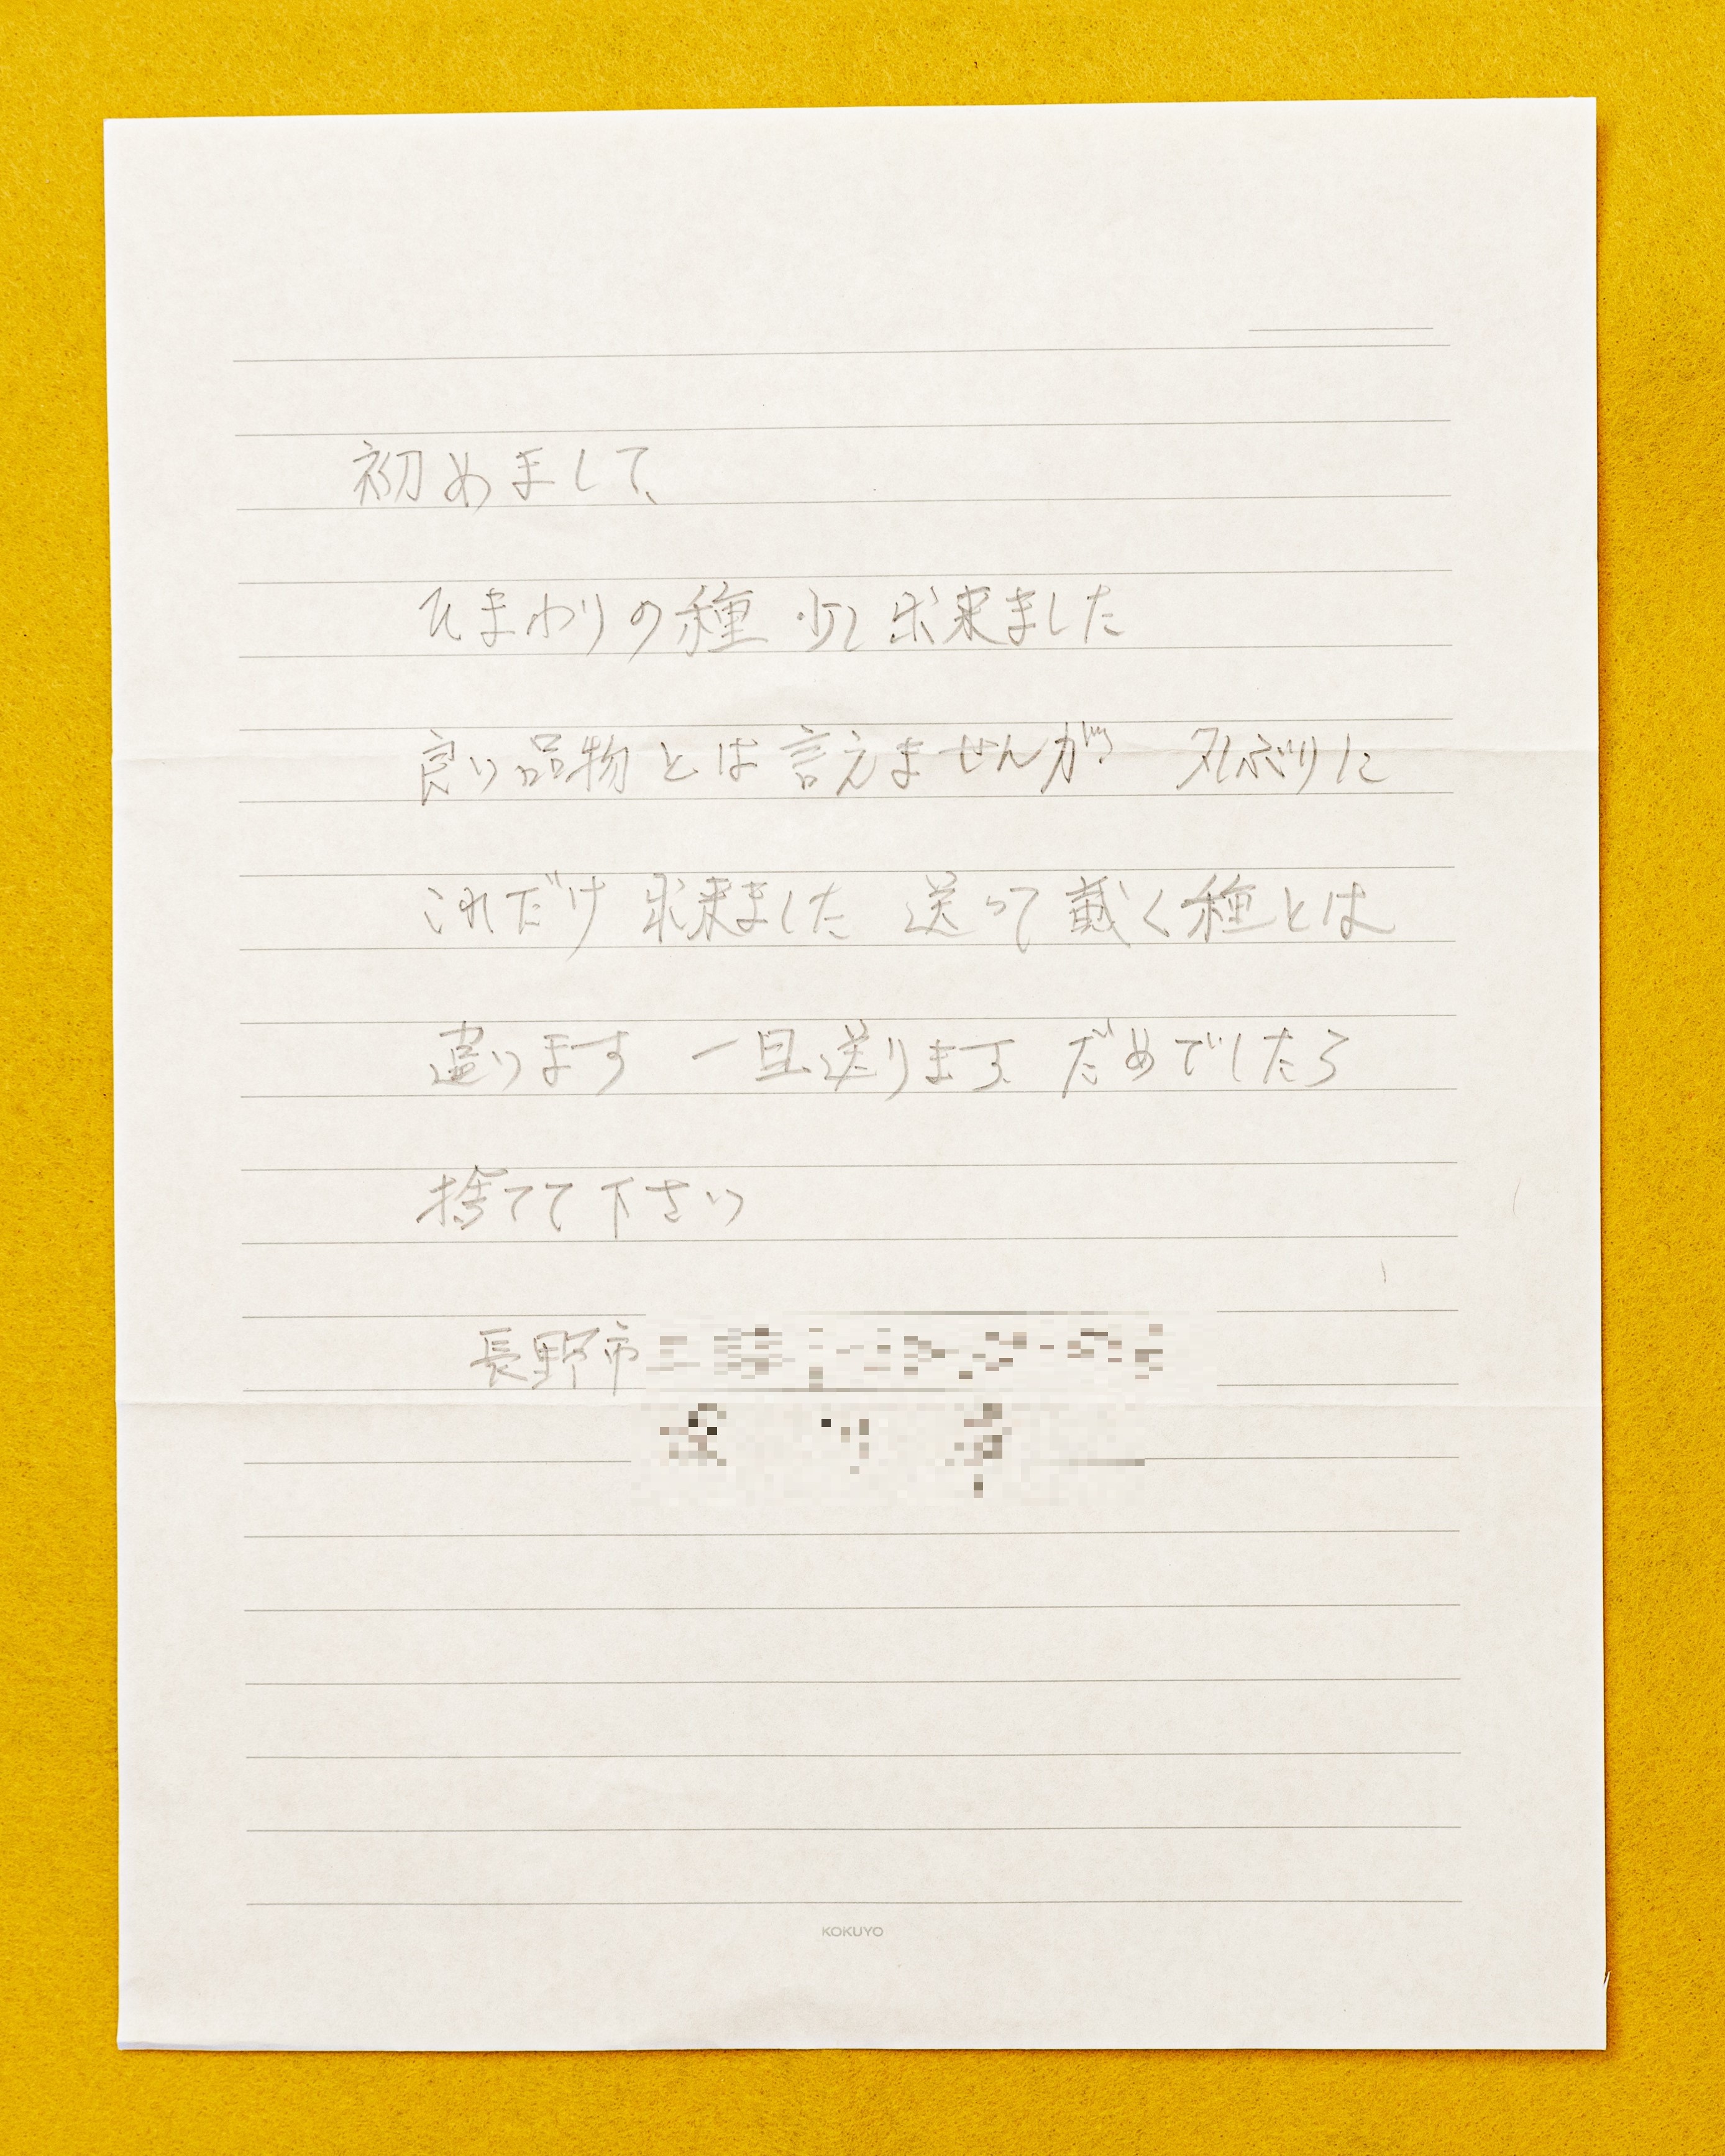 初めまして、
ひまわりの種 少し出来ました
良い品物とは言えませんが 久しぶりに
これだけ出来ました 送って戴く種とは
違います 一旦送ります だめでしたら
捨てて下さい
長野市
KOKUYO